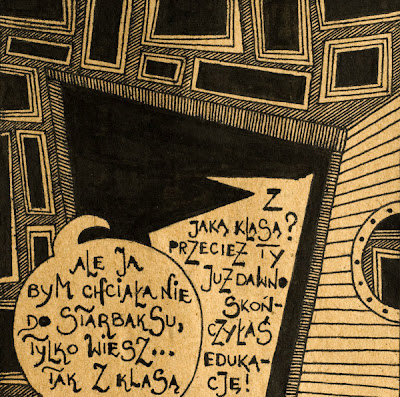 ALE JA
BYM CHCIAŁA NIE
DO STARBAKSU,
TYLKO WIESZ...
TAK Z KLASĄ
Z
JAKĄ KLASĄ?
PRZECIEŻ TY
JUŻ DAWNO
SKOŃ-
CZYŁAŚ
EDUKA-
CJĘ!